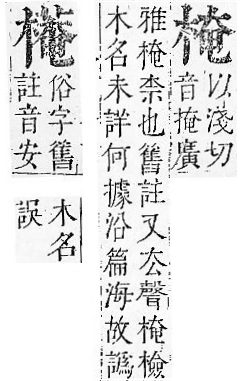 㭺
以淺切
音掩廣
雅㭺柰也舊註又厺聲㭺檢
木名未詳何據沿篇海故譌
俗字舊
註音安
木名
誤